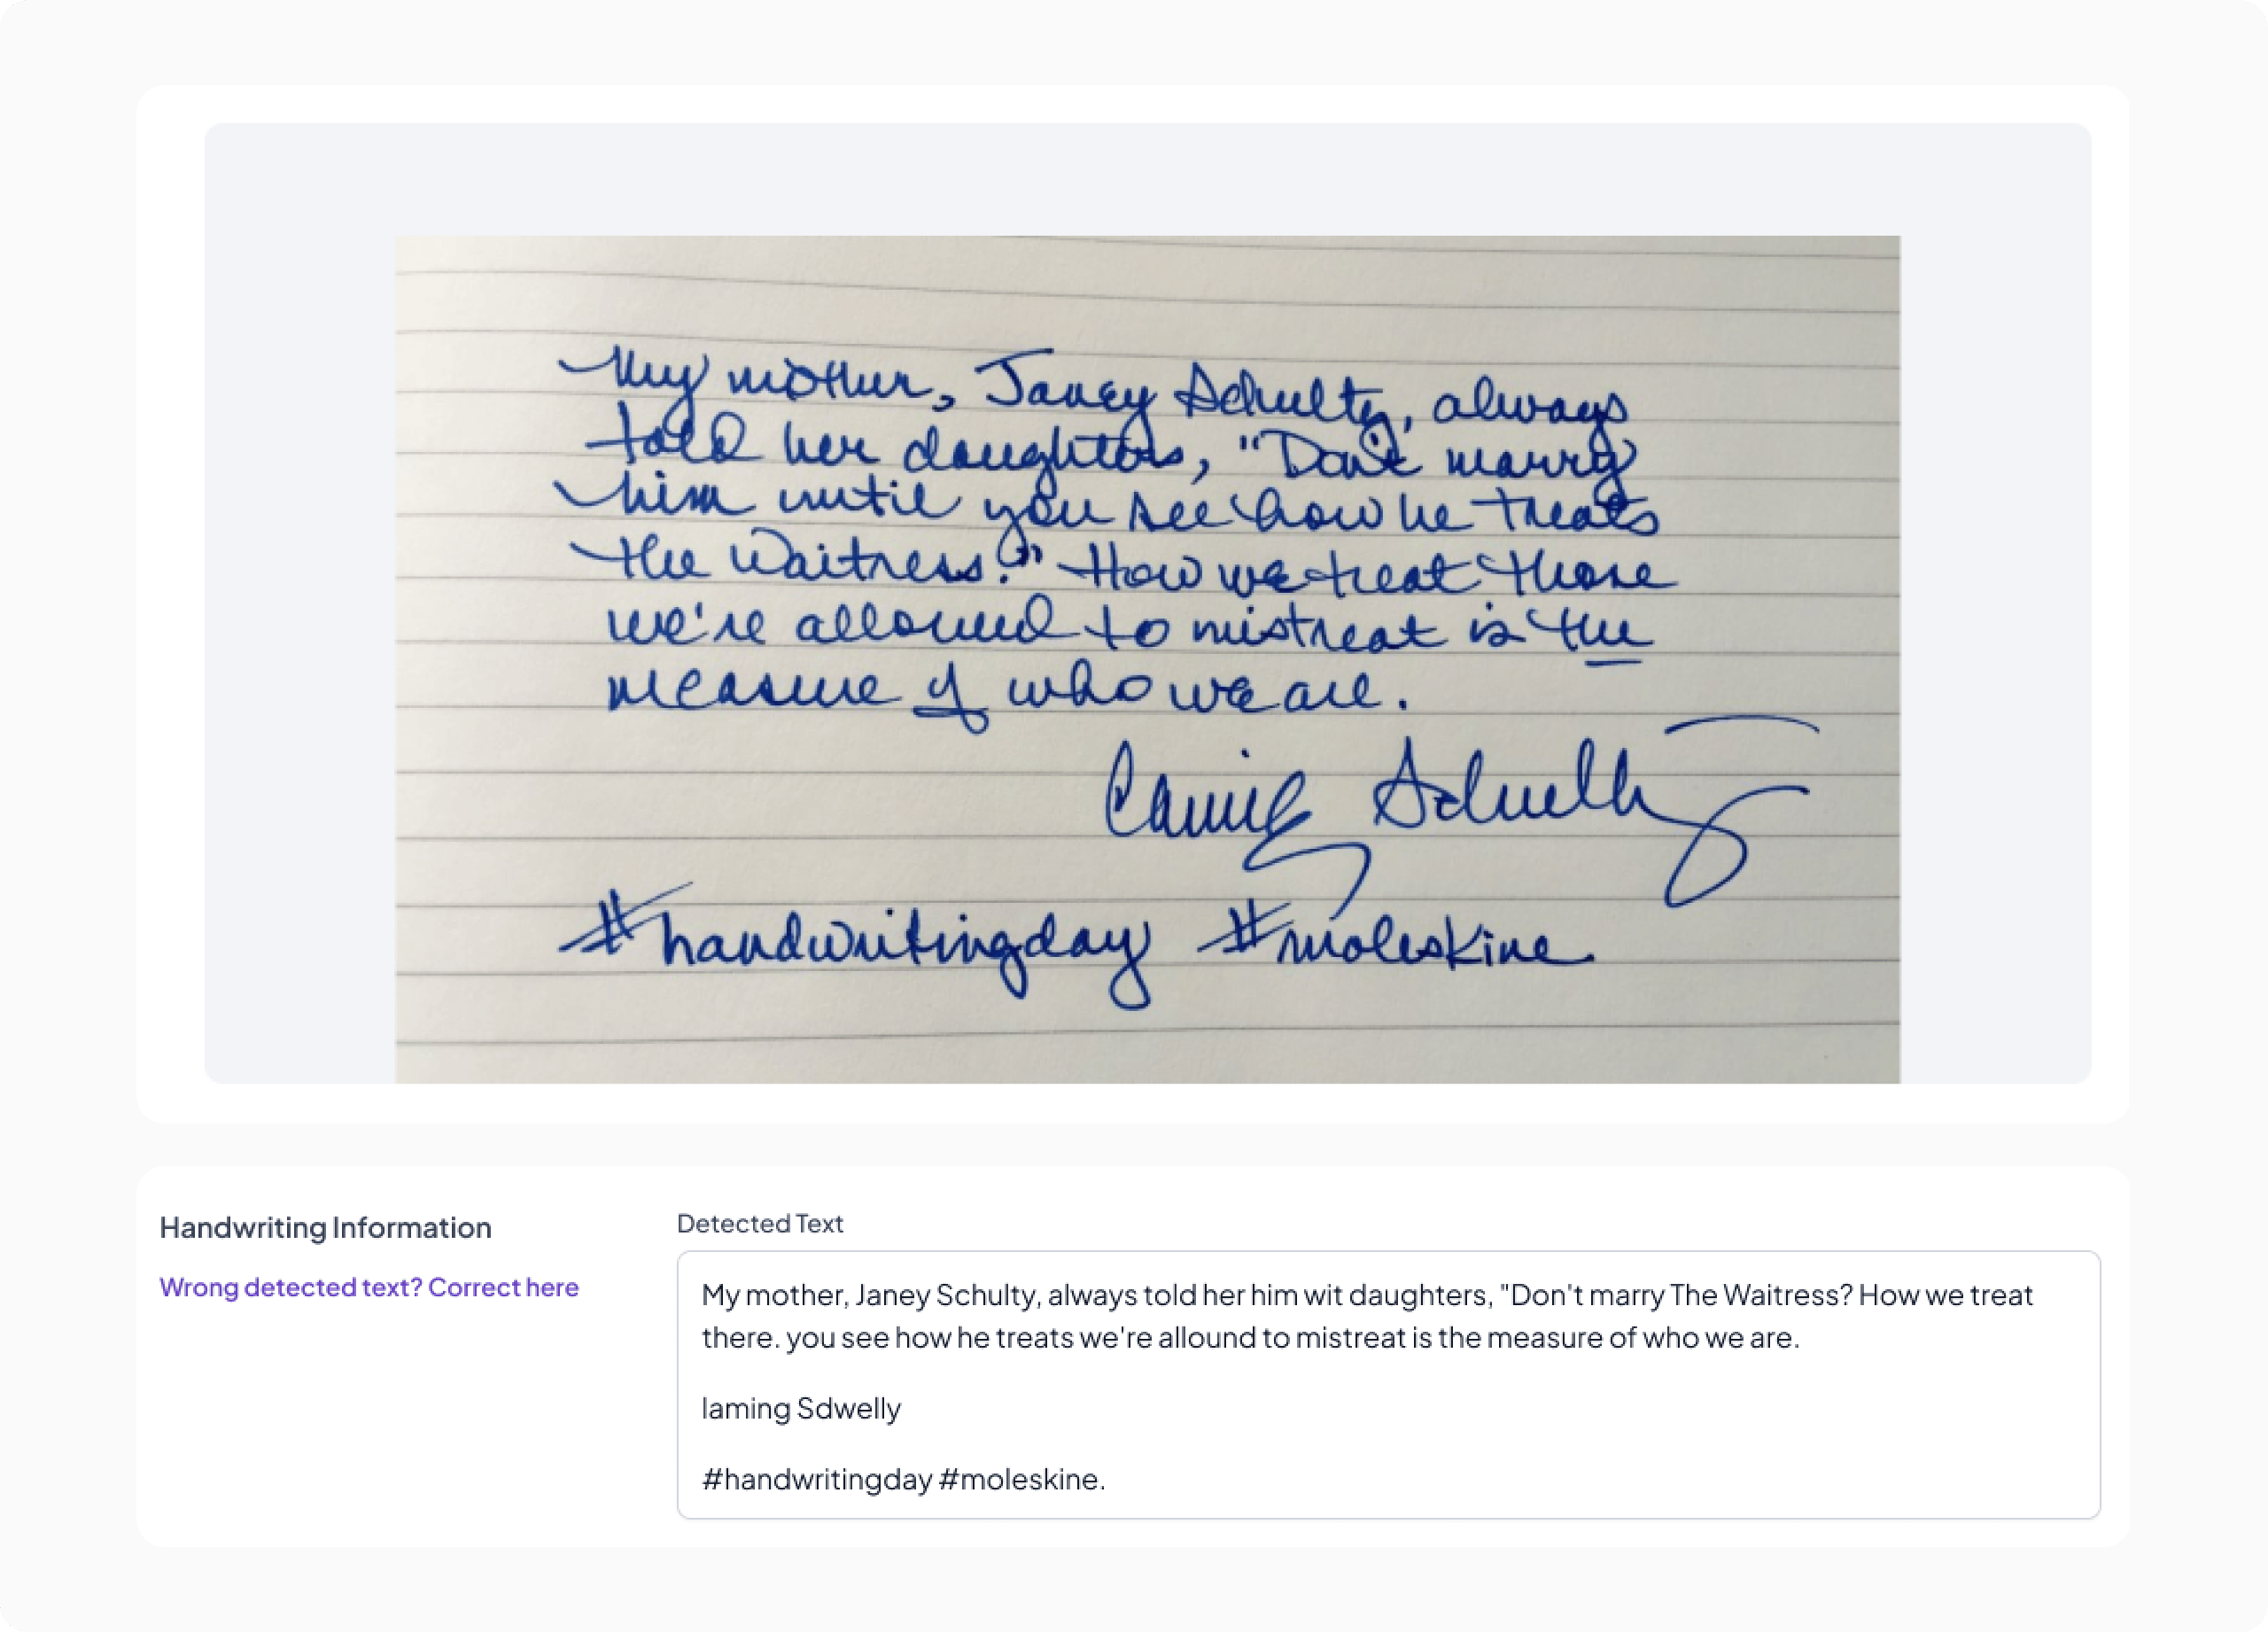 My mother, Janey Schultz, always
told her daughters, "Don't marry
him until you see how he treats
the Waitress." How we treat those
we're allowed to mistreat is the
measure of who we are.
Schultz
#handwritingday #moleskine.
Handwriting Information
Wrong detected text? Correct here
Detected Text
My mother, Janey Schulty, always told her him wit daughters, "Don't marry The Waitress? How we treat
there. you see how he treats we're allound to mistreat is the measure of who we are.
laming Sdwelly
#handwritingday #moleskine.